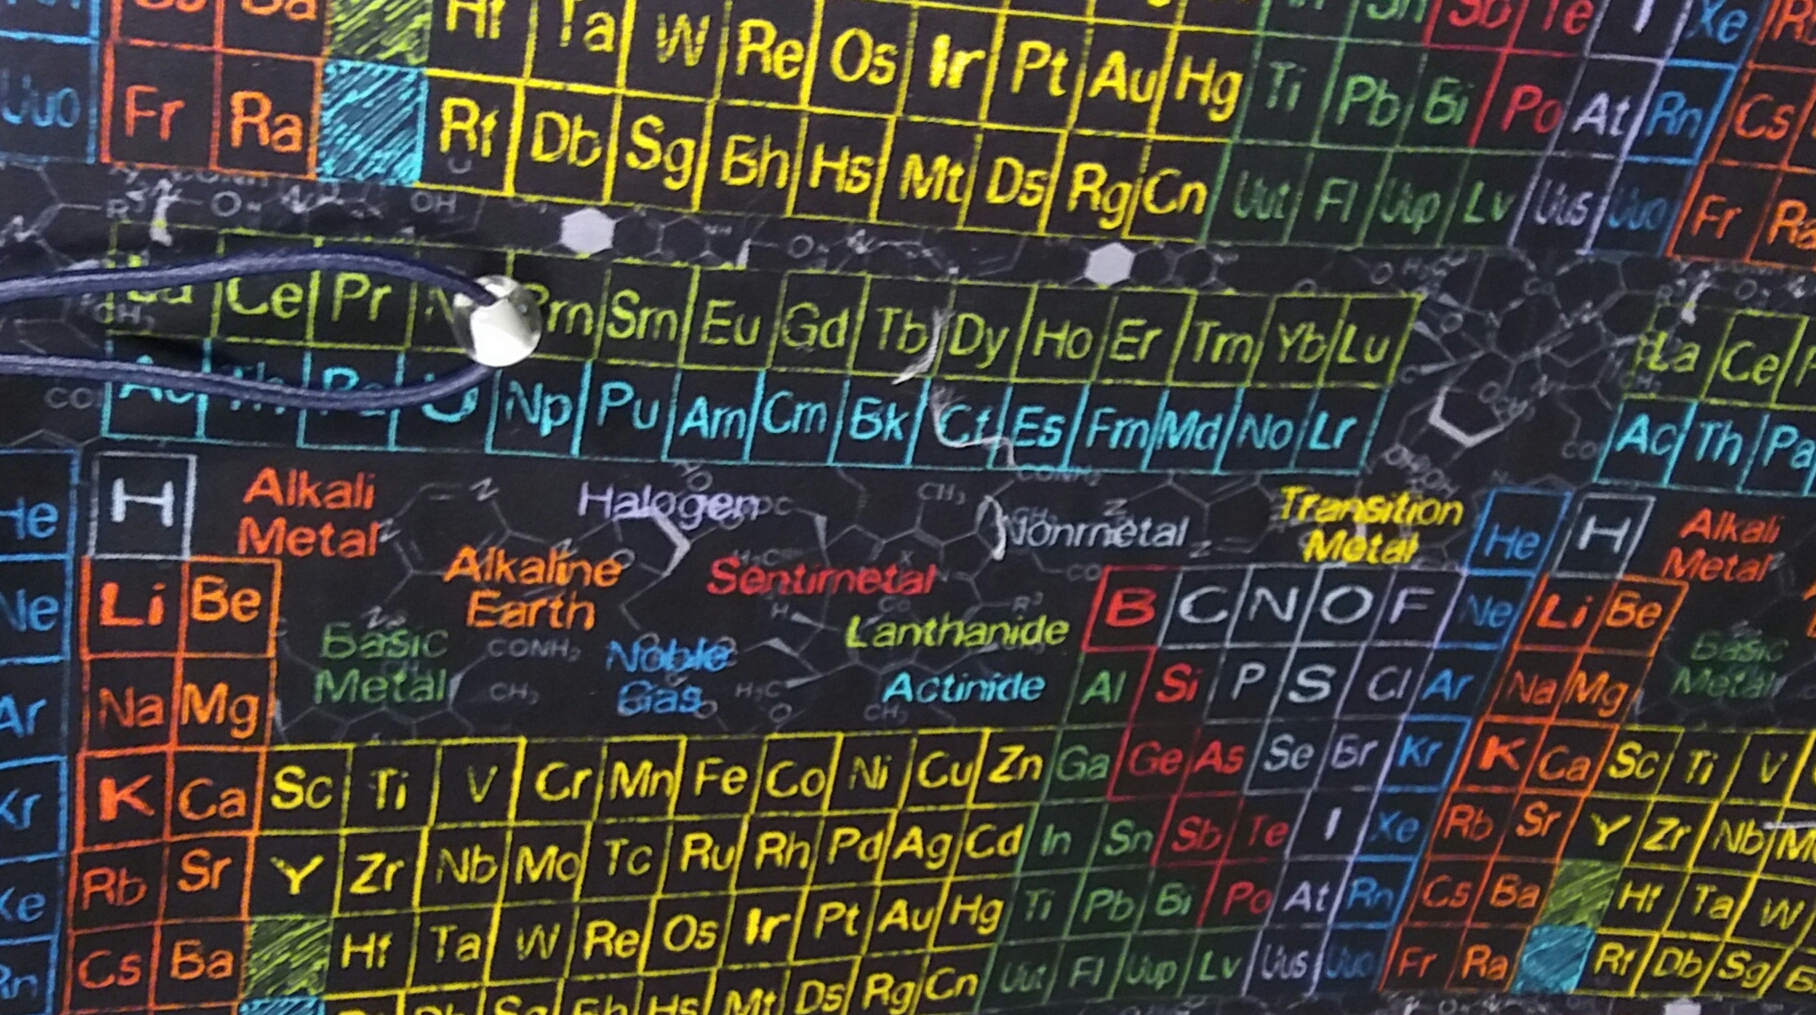 Hf Ta W Re Os Ir Pt Au Hg Sn Sb Te I Xe
Uuo Fr Ra Rf Db Sg Bh Hs Mt Ds Rg Cn Ti Pb Bi Po At Rn Cs
Uut Fl Uup Lv Uus Uuo Fr Ra
OH
Ce Pr Sm Eu Gd Tb Dy Ho Er Tm Yb Lu La Ce
Np Pu Am Cm Bk Cf Es Fm Md No Lr Ac Th Pa
He H Alkali Metal Halogen Nonmetal Transition Metal He H Alkali Metal
Ne Li Be Alkaline Earth Sentimetal B C N O F Ne Li Be
Basic Metal CONH₂ Noble Gas Lanthanide Basic Metal
Ar Na Mg CH₃ H₃C Actinide Al Si P S Cl Ar Na Mg
Kr K Ca Sc Ti V Cr Mn Fe Co Ni Cu Zn Ga Ge As Se Br Kr K Ca Sc Ti V
Xe Rb Sr Y Zr Nb Mo Tc Ru Rh Pd Ag Cd In Sn Sb Te I Xe Rb Sr Y Zr Nb
Rn Cs Ba Hf Ta W Re Os Ir Pt Au Hg Ti Pb Bi Po At Rn Cs Ba Hf Ta W
Mt Ds Rg Cn Uut Fl Uup Lv Uus Uuo Fr Ra Rf Db Sg